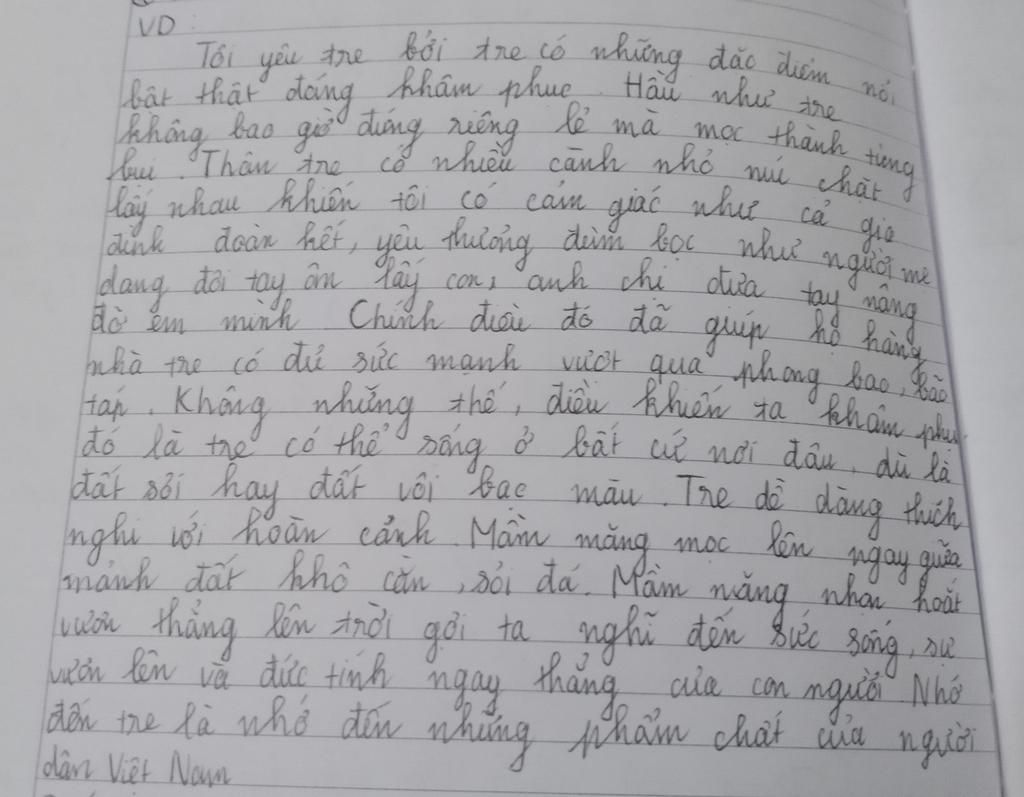 VD :
Tôi yêu tre bởi tre có những đặc điểm nổi
bật thật đáng khâm phục. Hầu như tre
không bao giờ đứng riêng lẻ mà mọc thành từng
bụi. Thân tre có nhiều cành nhỏ níu chặt
lấy nhau khiến tôi có cảm giác như cả gia
đình đoàn kết, yêu thương đùm bọc như người mẹ
dang đôi tay ôm lấy con, anh chị đưa tay nâng
đỡ em mình. Chính điều đó đã giúp họ hàng
nhà tre có đủ sức mạnh vượt qua phong bao, bão
táp. Không những thế, điều khiến ta khâm phục
đó là tre có thể sống ở bất cứ nơi đâu, dù là
đất sỏi hay đất vôi bạc màu. Tre dễ dàng thích
nghi với hoàn cảnh. Mầm măng mọc lên ngay giữa
mảnh đất khô cằn, sỏi đá. Mầm măng nhọn hoắt
vươn thẳng lên trời gợi ta nghĩ đến sức sống, sự
vươn lên và đức tính ngay thẳng của con người. Nhớ
đến tre là nhớ đến những phẩm chất của người
dân Việt Nam